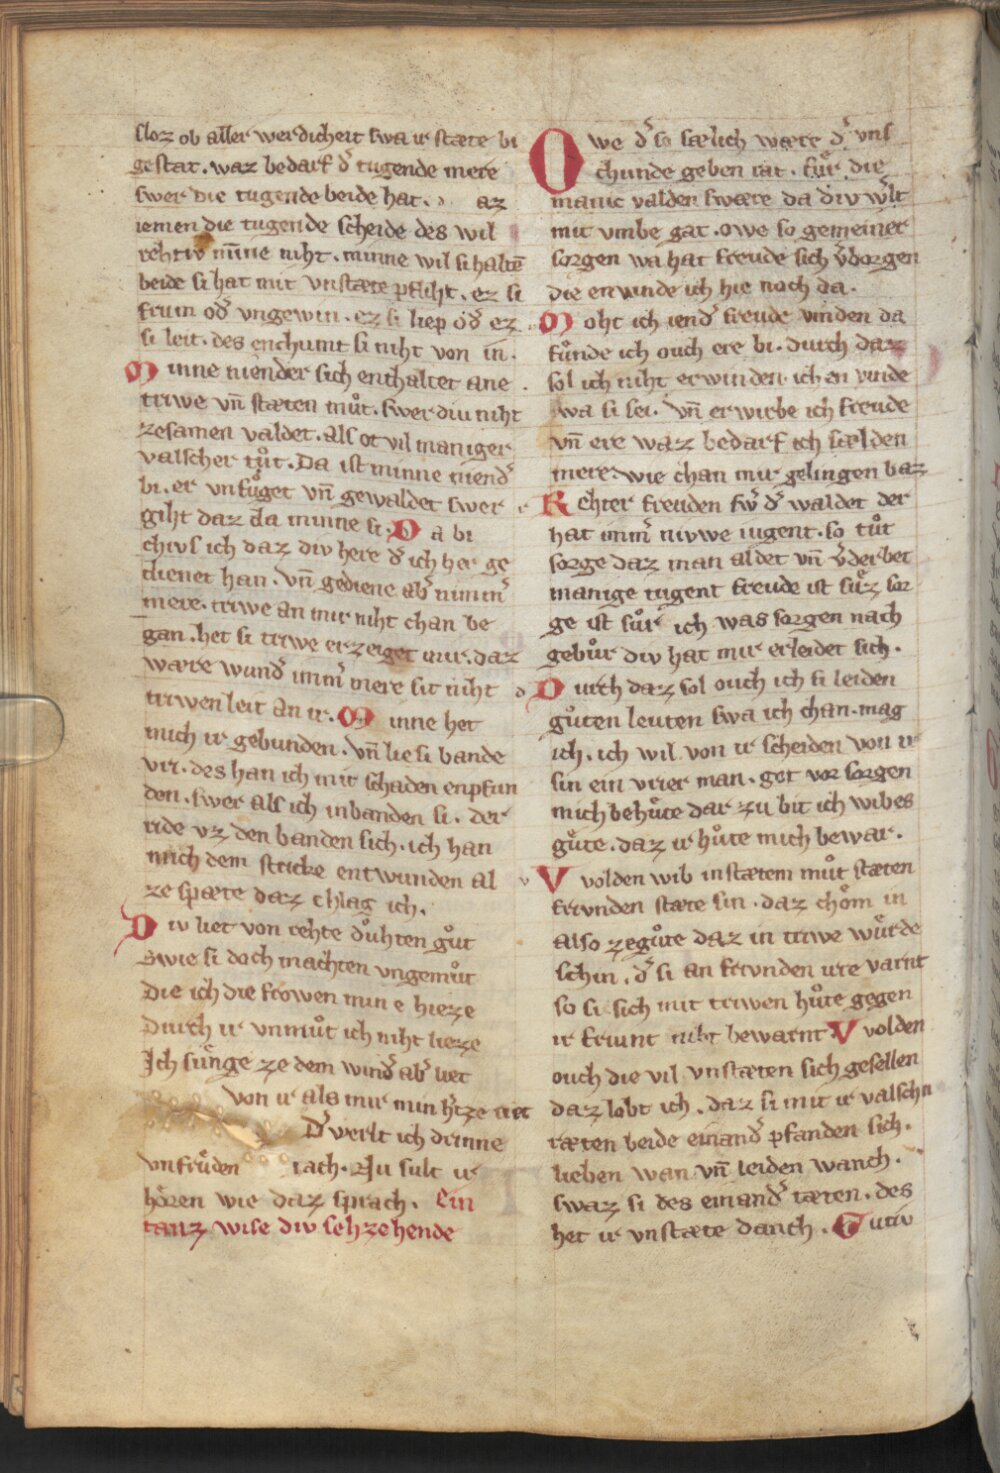 sloz ob aller werdicheit swa ir stæte bi
gestat. waz bedarf d̕ tugende mere
swer die tugende beide hat. az
iemen die tugende scheide des wil
rehtiv min̄e niht. minne wil si haltē
beide si hat mit vnstæte pfliht. ez si
frum od̕ vngewin. ez si liep od̕ ez
si leit. des enchumt si niht von in.
Minne niender sich enthaltet ane
triwe vn̄ stæten můt. swer diu niht
zesamen valdet. als ot vil maniger
valscher tůt. Da ist minne niend̕
bi. er vnfůget vn̄ gewaldet swer
giht daz da minne si. Da bi
chivs ich daz div here d̕ ich her ge
dienet han. vn̄ gediene ab̕ nimm̕
mere. triwe an mir niht chan be
gan. het si triwe erzeiget mir. daz
wære wund̕ imm̕ mere sit niht
triwen leit an ir. Minne het
mich ir gebunden. vn̄ lie si bande
vri. des han ich mit schaden enpfun
den. swer als ich inbanden si. der
ride vz den banden sich. ich han
mich dem stricke entwunden al
ze spæte daz chlag ich.
Div liet von rehte důhten gůt
Swie si doch machten vngemůt
Die ich die frowen min e hieze
Durch ir vnmůt ich niht lieze
Ich sunge ze dem wind̕ ab̕ liet
von ir als mir min h̕tze riet
D̕ werlt ich drinne
vnfrůden rach. Nu sult ir
hôren wie daz sprach. Ein
tanz wise div sehzehende
Owe d̕ so sælich wære d̕ vns
chunde geben rat. fůr die
manic valden swære da div w̕lt
mit vmbe gat. owe so gemeiner
sorgen wa hat freude sich v̕borgen
die envinde ich hie noch da.
Moht ich iend̕ freude vinden da
fůnde ich ouch ere bi. durch daz
sol ich niht erwinden. ich en vinde
wa si sei. vn̄ erwirbe ich freude
vn̄ ere waz bedarf ich sælden
mere. wie chan mir gelingen baz
Rehter freuden sw̕ d̕ waldet der
hat imm̕ nivwe iugent. so tůt
sorge daz man aldet vn̄ v̕derbet
manige tugent freude ist sůz sor
ge ist sůr ich was sorgen nach
gebůr div hat mir erleidet sich.
Durch daz sol ouch ich si leiden
gůten leuten swa ich chan. mag
ich. ich wil von ir scheiden von ir
sin ein vrier man. got vor sorgen
mich behůte dar zu bit ich wibes
gůte. daz ir hůte mich bewar.
Volden wib in stætem můt stæten
frivnden stæte sin. daz chôm in
also ze gůte daz in triwe wůrde
schin. d̕ si an frvnden ire varnt
so si sich mit triwen hůte gegen
ir friunt niht bewarnt Volden
ouch die vil vnstæten sich gesellen
daz lobt ich. daz si mit ir valschn
ræten beide einand̕ pfanden sich.
lieben wan vn̄ leiden wanch.
swaz si des einand̕ tæten. des
het ir vnstæte danch. Gutiv